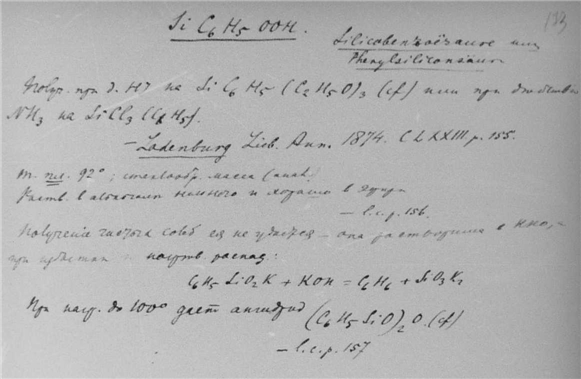 Si C6 H5 OOH. 133
Silicobenzoësäure или
Phenylsiliconsäure
Получ. при д. HI на Si C6 H5 (C2 H5 O)3 (cf) или при действии
NH3 на SiCl3 (C6 H5).
— Ladenburg Lieb. Ann. 1874. CLXXIII p. 155.
т. пл. 92°; стеклообр. масса
Раств. в немного и хорошо в эфире
— l. c. p. 156.
Получение не удается — она растворима в KHO, —
при избытке и распад:
C6 H5 SiO2 K + KOH = C6 H6 + SiO3 K2
При нагр. до 100° дает ангидрид (C6 H5 SiO)2 O. (cf)
— l. c. p. 157